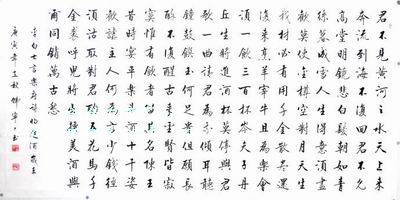 君不見黃河之水天上來
奔流到海不復回君不見
高堂明鏡悲白髮朝如青
絲暮成雪人生得意須盡
歡莫使金樽空對月天生
我材必有用千金散盡還
復來烹羊宰牛且為樂會
須一飲三百杯岑夫子丹
丘生將進酒杯莫停與君
歌一曲請君為我傾耳聽
鐘鼓饌玉何足貴但願長
醉不復醒古來聖賢皆寂
寞惟有飲者留其名陳王
昔時宴平樂斗酒十千恣
歡謔主人何為言少錢徑
須沽取對君酌五花馬千
金裘呼兒將出換美酒與
爾同銷萬古愁
李白七言樂府詩將進酒歲在
庚寅年孟秋 書